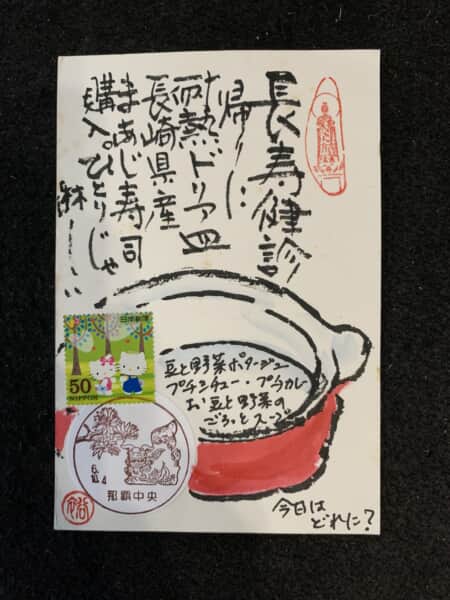 長寿健診
帰りに
耐熱ドリア皿
長崎県産
まあじ寿司
購入。ひとりじゃ
淋しい
豆と野菜ポタージュ
プチシチュー・プチカレー
お豆と野菜の
ごろっとスープ
今日は
どれに?
日本郵便
50
NIPPON
6
10.4
那覇中央